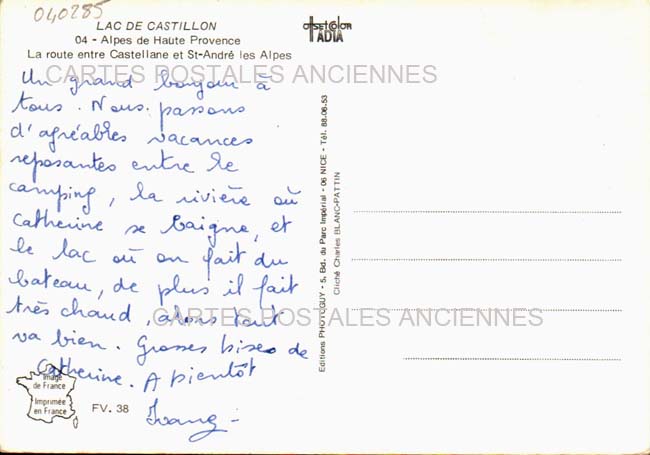 040285
LAC DE CASTILLON
04 - Alpes de Haute Provence
La route entre Castellane et St-André les Alpes
offset color
IADIA
CARTES POSTALES ANCIENNES
Un grand bonjour à
tous. Nous passons
d'agréables vacances
reposantes entre le
camping, la rivière où
Catherine se baigne, et
le lac où on fait du
bateau, de plus il fait
très chaud, alors tout
va bien. Grosses bises de
Catherine. A bientôt
CARTES POSTALES ANCIENNES
Image
de France
Imprimée
en France
FV. 38
Editions PHOTOGUY - 5, Bld. du Parc Impérial - 06 NICE - Tél. 88-06-53
Cliché Charles BLANC-PATTIN